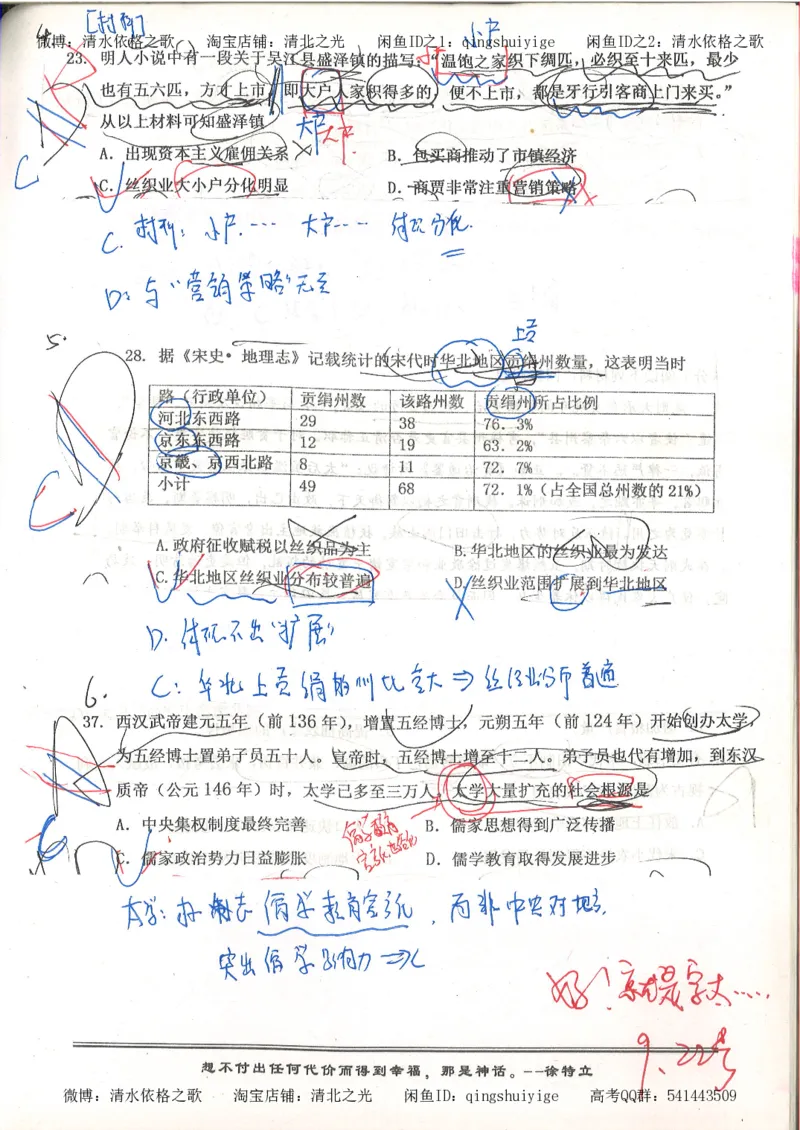 [材料]
小户
微博:清水依格之歌 淘宝店铺:清北之光 闲鱼ID之1:qingshuiyige 闲鱼ID之2:清水依格之歌
23. 明人小说中有一段关于吴江县盛泽镇的描写:“温饱之家织下绸匹,必织至十来匹,最少
也有五六匹,方才上市。即大户人家积得多的,便不上市,都是牙行引客商上门来买。”
从以上材料可知盛泽镇
大户
大户
A. 出现资本主义雇佣关系 B. 包买商推动了市镇经济
C. 丝织业大小户分化明显 D. 商贾非常注重营销策略
C
C. 材料:小户…… 大户…… 体现分化.
D:与“营销策略”无关
5.
上贡
28. 据《宋史·地理志》记载统计的宋代时华北地区贡绢州数量,这表明当时
路(行政单位) 贡绢州数 该路州数 贡绢州所占比例
河北东西路 29 38 76.3%
京东东西路 12 19 63.2%
京畿、京西北路 8 11 72.7%
小计 49 68 72.1%(占全国总州数的21%)
C
A.政府征收赋税以丝织品为主 B.华北地区的丝织业最为发达
C.华北地区丝织业分布较普遍 D.丝织业范围扩展到华北地区
D. 体现不出“扩展”
C:华北上贡绢的州比例大⇒丝织业分布普遍
6.
37. 西汉武帝建元五年(前136年),增置五经博士,元朔五年(前124年)开始创办太学,
为五经博士置弟子员五十人。宣帝时,五经博士增至十二人。弟子员也代有增加,到东汉
质帝(公元146年)时,太学已多至三万人。太学大量扩充的社会根源是
A. 中央集权制度最终完善 B. 儒家思想得到广泛传播
C. 儒家政治势力日益膨胀 D. 儒学教育取得发展进步
太学:标志儒学教育官方化,而非中央对地方.
突出儒学影响力⇒C
好!就是字太……
9.22号
想不付出任何代价而得到幸福,那是神话。--徐特立
微博:清水依格之歌 淘宝店铺:清北之光 闲鱼ID:qingshuiyige 高考QQ群:541443509